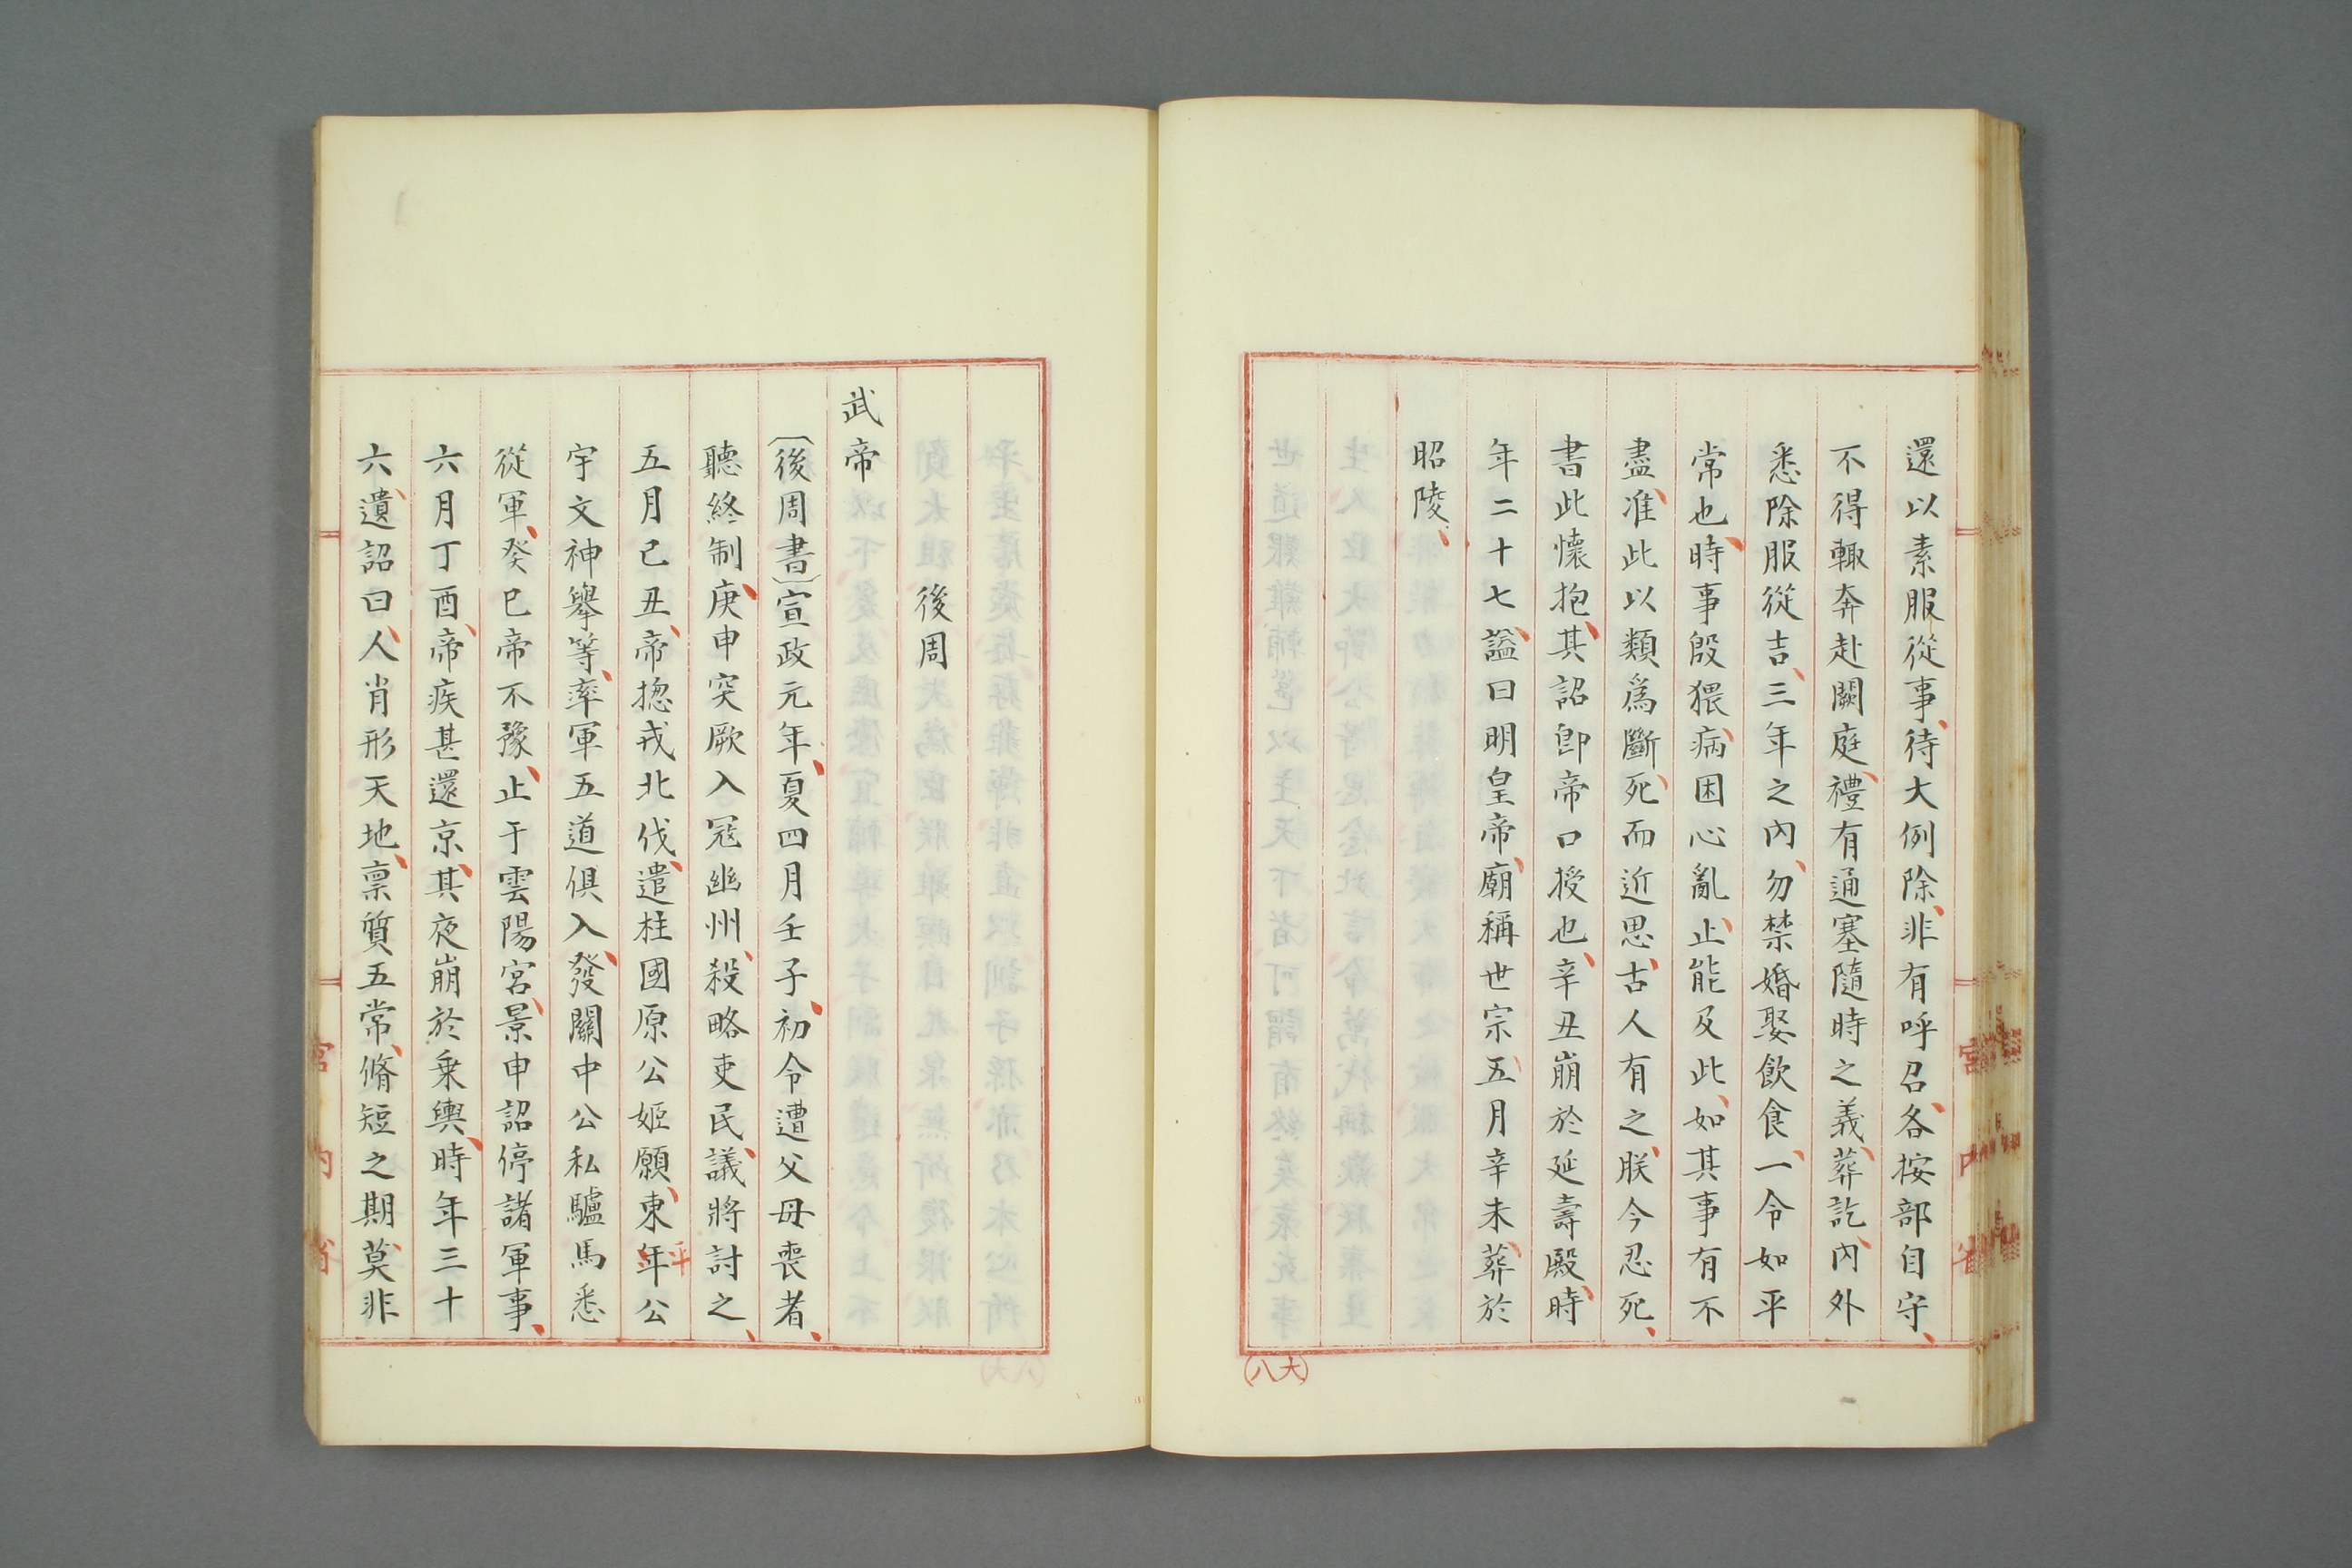 還以素服從事待大例除非有呼召各按部自守
不得輙奔赴闕庭禮有通塞隨時之義葬訖內外
悉除服從吉三年之內勿禁婚娶飲食一令如平
常也時事殷猥病困心亂止能及此如其事有不
盡准此以類爲斷死而近思古人有之朕今忍死
書此懷抱其詔卽帝口授也辛丑崩於延壽殿時
年二十七謚曰明皇帝廟稱世宗五月辛未葬於
昭陵
(大八)
後周
武帝
〔後周書〕宣政元年夏四月壬子初令遭父母喪者
聽終制庚申突厥入冦幽州殺略吏民議將討之
五月己丑帝揔戎北伐遣柱國原公姬願東年公
平
宇文神舉等率軍五道俱入發關中公私驢馬悉
從軍癸巳帝不豫止于雲陽宮景申詔停諸軍事
六月丁酉帝疾甚還京其夜崩於乗輿時年三十
六遺詔曰人肖形天地禀質五常脩短之期莫非
宮內省